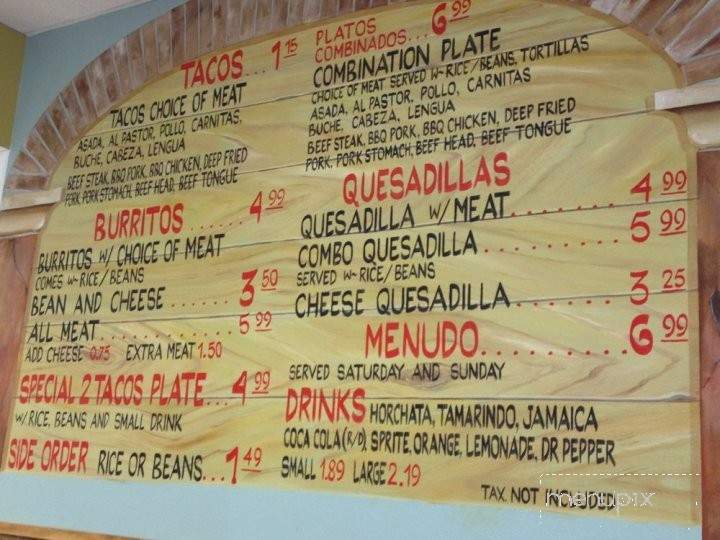 TACOS... 1 15
TACOS CHOICE OF MEAT
ASADA, AL PASTOR, POLLO, CARNITAS,
BUCHE, CABEZA, LENGUA
BEEF STEAK, BBQ PORK, BBQ CHICKEN, DEEP FRIED
PORK, PORK STOMACH, BEEF HEAD, BEEF TONGUE
BURRITOS ..... 4 99
BURRITOS W/ CHOICE OF MEAT
COMES W- RICE/BEANS
BEAN AND CHEESE ...... 3 50
ALL MEAT............ 5 99
ADD CHEESE 0.75 EXTRA MEAT 1.50
SPECIAL 2 TACOS PLATE... 4 99
W/ RICE, BEANS AND SMALL DRINK
SIDE ORDER RICE OR BEANS... 1 49
PLATOS
COMBINADOS... 6 99
COMBINATION PLATE
CHOICE OF MEAT SERVED W-RICE/BEANS, TORTILLAS
ASADA, AL PASTOR, POLLO, CARNITAS
BUCHE, CABEZA, LENGUA
BEEF STEAK, BBQ PORK, BBQ CHICKEN, DEEP FRIED
PORK, PORK STOMACH, BEEF HEAD, BEEF TONGUE
QUESADILLAS
QUESADILLA W/MEAT........ 4 99
COMBO QUESADILLA .......... 5 99
SERVED W- RICE/BEANS
CHEESE QUESADILLA........ 3 25
MENUDO.......... 6 99
SERVED SATURDAY AND SUNDAY
DRINKS HORCHATA, TAMARINDO, JAMAICA
COCA COLA (R/D), SPRITE, ORANGE, LEMONADE, DR PEPPER
SMALL 1.89 LARGE 2.19
TAX NOT INCLUDED
menupix